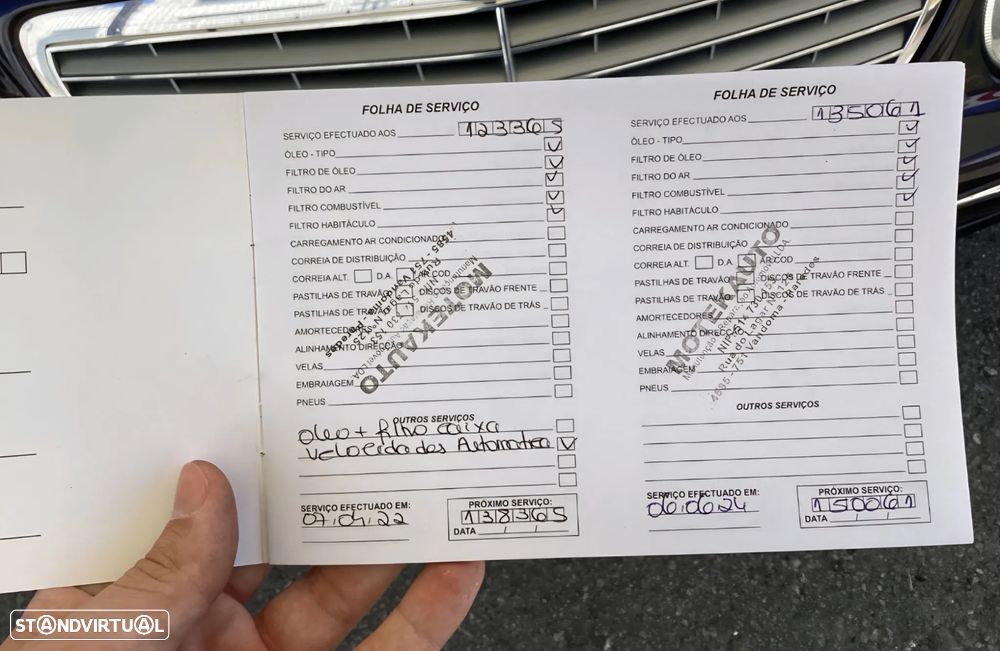 FOLHA DE SERVIÇO
SERVIÇO EFECTUADO AOS 123365
ÓLEO - TIPO
FILTRO DE ÓLEO
FILTRO DO AR
FILTRO COMBUSTÍVEL
FILTRO HABITÁCULO
CARREGAMENTO AR CONDICIONADO
CORREIA DE DISTRIBUIÇÃO
CORREIA ALT. D.A. AR COD
PASTILHAS DE TRAVÃO DISCOS DE TRAVÃO FRENTE
PASTILHAS DE TRAVÃO DISCOS DE TRAVÃO DE TRÁS
AMORTECEDORES
ALINHAMENTO DIRECÇÃO
VELAS
EMBRAIAGEM
PNEUS
MOTEKAUTO
4585 - 751 Vandoma - Paredes
OUTROS SERVIÇOS
oleo + filtro caixa
velocidades Automatica
SERVIÇO EFECTUADO EM:
07.04.22
PRÓXIMO SERVIÇO:
138365
DATA
FOLHA DE SERVIÇO
SERVIÇO EFECTUADO AOS 135061
ÓLEO - TIPO
FILTRO DE ÓLEO
FILTRO DO AR
FILTRO COMBUSTÍVEL
FILTRO HABITÁCULO
CARREGAMENTO AR CONDICIONADO
CORREIA DE DISTRIBUIÇÃO
CORREIA ALT. D.A. AR COD
PASTILHAS DE TRAVÃO DISCOS DE TRAVÃO FRENTE
PASTILHAS DE TRAVÃO DISCOS DE TRAVÃO DE TRÁS
AMORTECEDORES
ALINHAMENTO DIRECÇÃO
VELAS
EMBRAIAGEM
PNEUS
MOTEKAUTO
Rua do Lagar Nº 125
4585 - 751 Vandoma - Paredes
OUTROS SERVIÇOS
SERVIÇO EFECTUADO EM:
06.06.24
PRÓXIMO SERVIÇO:
150061
DATA
STANDVIRTUAL